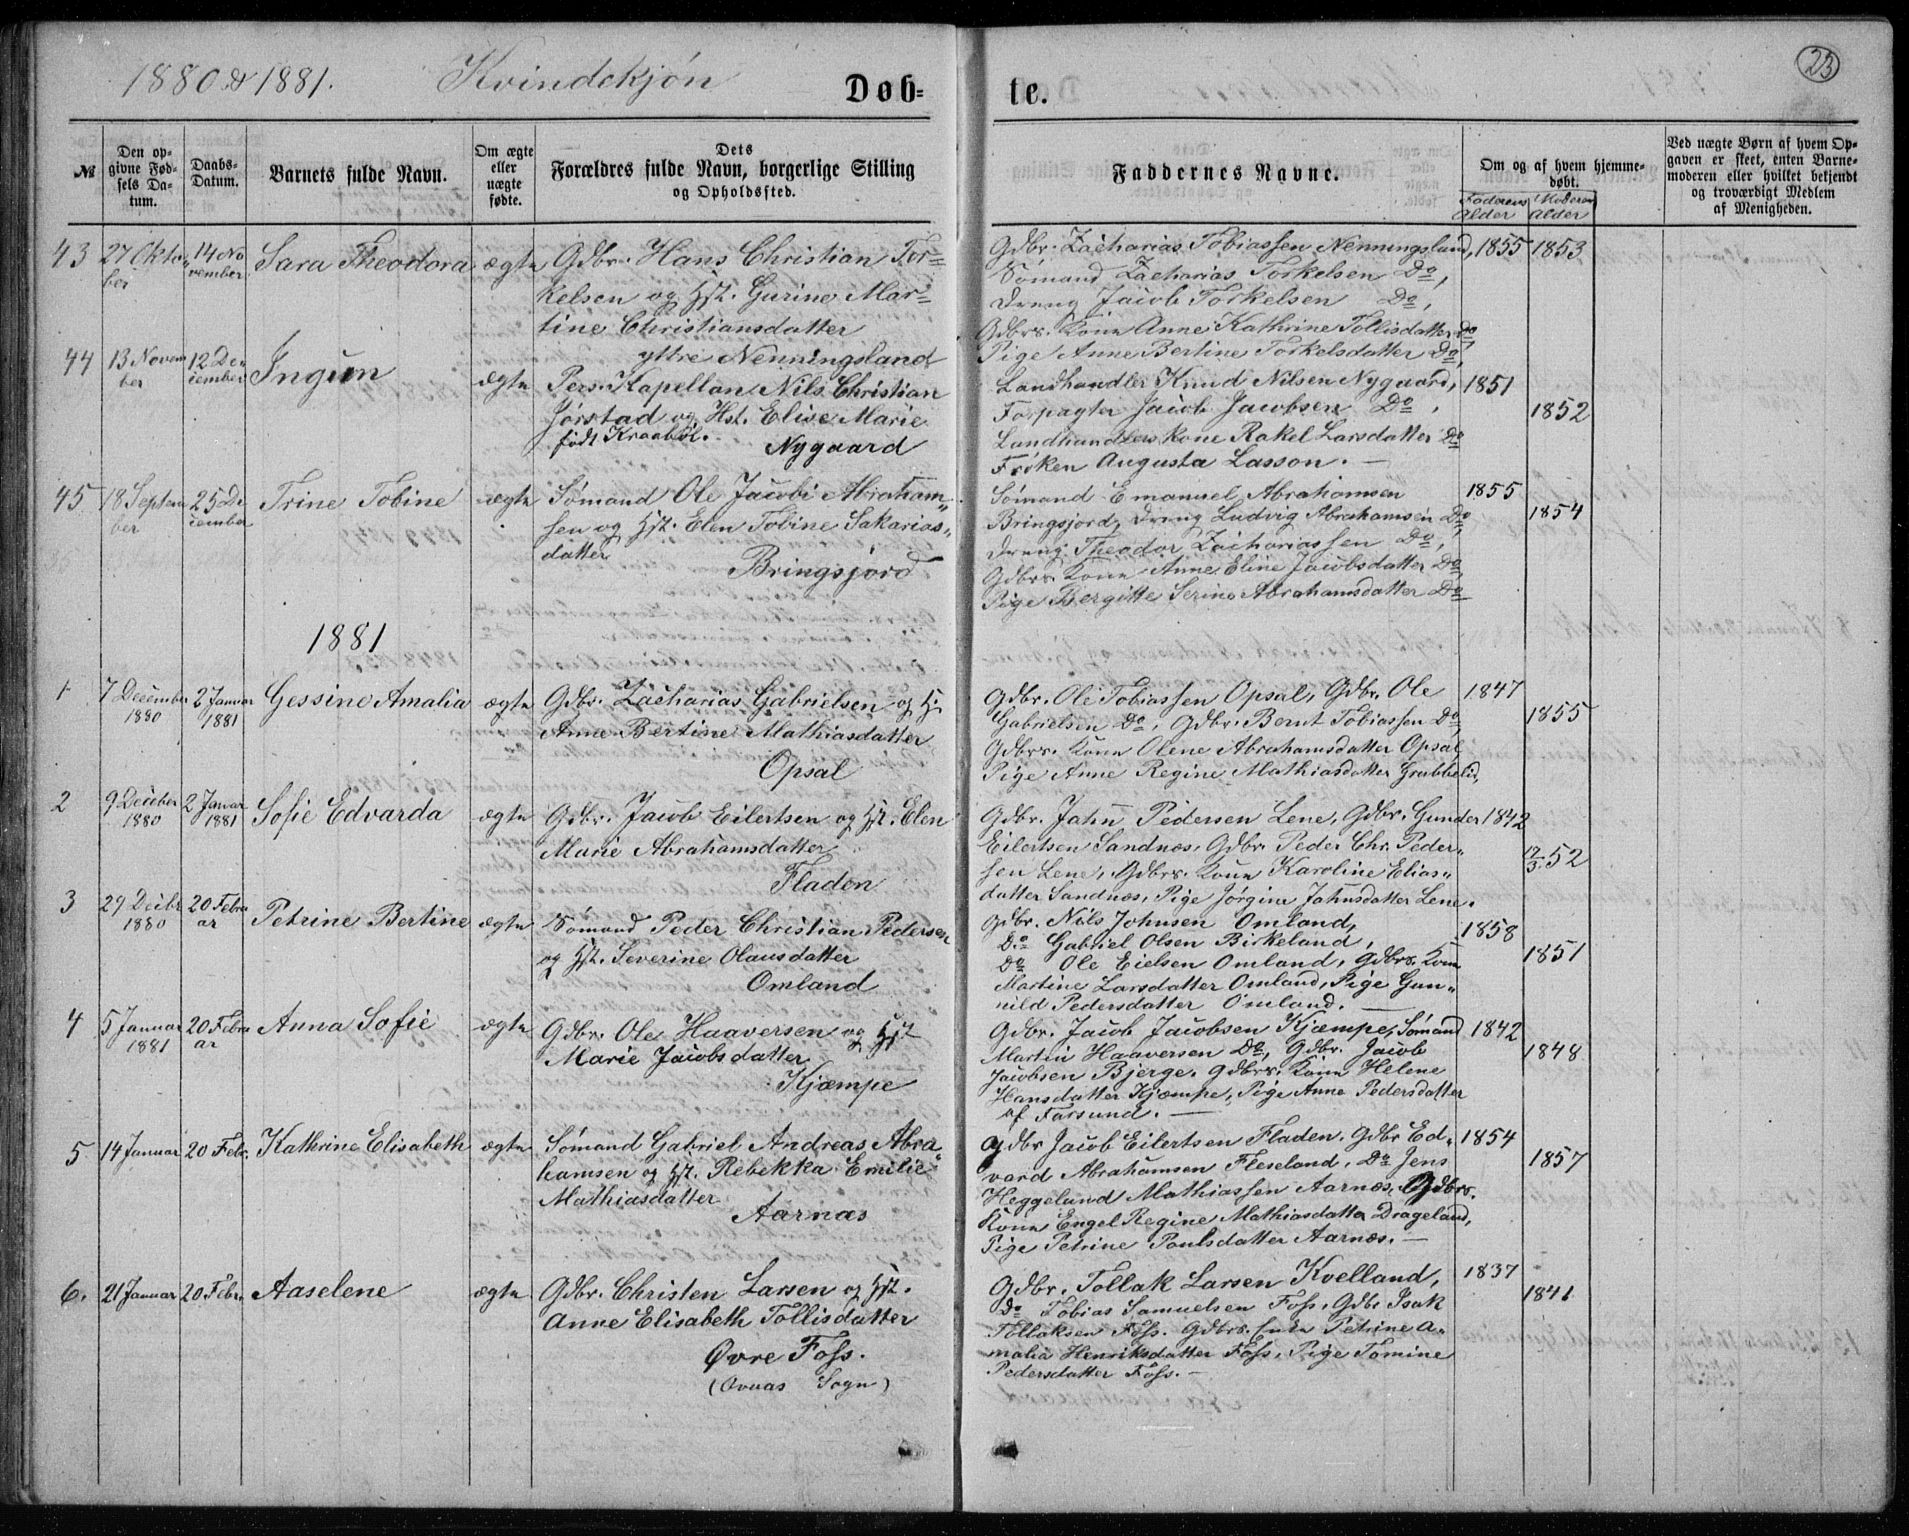 1880 & 1881. Kvindekjøn Døb-
te. 23
№
Den op-
givne Fød-
sels Da-
tum.
Daabs-
Datum.
Barnets fulde Navn.
Om ægte
eller
uægte
fødte.
Dets
Forældres fulde Navn, borgerlige Stilling
og Opholdssted.
Faddernes Navne.
Om og af hvem hjemme-
døbt.
Faderens
Alder
Moderens
Alder
Ved uægte Børn af hvem Op-
gaven er skeet, enten Barne-
moderen eller hvilket bekjendt
og troværdigt Medlem
af Menigheden.
43 27 Okto-
ber
14 No
vember
Sara Theodora ægte
Gdbr. Hans Christian Tor-
kelsen og Hst. Gurine Mar-
tine Christiansdatter
yttre Nenningsland
Gdbr. Zacharias Tobiassen Nenningsland, 1855 1853
Sømand Zacharias Torkelsen Do,
Dreng Jacob Torkelsen Do,
Gdbrs. Kone Anne Kathrine Tollisdatter Do
Pige Anne Bertine Torkelsdatter Do,
44 13 Novem
ber
12 De
cember
Ingun ægte
Pers. Kapellan Nils Christian
Jørstad og Hst. Elise Marie
født Kraabøl.
Nygaard
Landhandler Knud Nilsen Nygaard, 1851
Forpagter Jacob Jacobsen Do, 1852
Landhandlers kone Rakel Larsdatter Do
Frøken Augusta Lasson. —
45 18 Septem
ber
25 De
cember
Trine Tobine ægte
Sømand Ole Jacobi Abraham-
sen og Hst. Elen Tobine Sakarias-
datter
Bringsjord
Sømand Emanuel Abrahamsen 1855
Bringsjord, Dreng Ludvig Abrahamsen Do, 1854
Dreng Theodor Zachariassen Do,
Gdbrs. Kone Anne Eline Jacobsdatter Do,
Pige Bergitte Serine Abrahamsdatter Do
1881
1 7 December
1880
2 Januar
1881
Gessine Amalia ægte
Gdbr. Zacharias Gabrielsen og H.
Anne Bertine Mathiasdatter
Opsal
Gdbr. Ole Tobiassen Opsal, Gdbr. Ole 1847
Gabrielsen Do, Gdbr. Bernt Tobiassen Do, 1855
Gdbrs. Kone Olene Abrahamsdatter Opsal
Pige Anne Regine Mathiasdatter Grubbelid,
2 9 December
1880
2 Januar
1881
Sofie Edvarda ægte
Gdbr. Jacob Eilertsen og Hst. Elen
Marie Abrahamsdatter
Fladen
Gdbr. Jahn Pedersen Lene, Gdbr. Gunder 1842
Eilertsen Sandnæs, Gdbr. Peder Chr. Peder- 12/3.52
sen Lene, Gdbrs. Kone Karoline Elias-
datter Sandnæs, Pige Jørgine Jahnsdatter Lene.
3 29 Decbr
1880
20 Febru
ar
Petrine Bertine ægte
Sømand Peder Christian Pedersen
og Hst. Severine Olausdatter
Omland
Gdbr. Nils Johnsen Omland, 1858
Do Gabriel Olsen Birkeland, 1851
Do Ole Eielsen Omland, Gdbrs. Kone
Martine Larsdatter Omland, Pige Gun-
nild Pedersdatter Omland. —
4 5 Januar
1881
20 Febru
ar
Anna Sofie ægte
Gdbr. Ole Haaversen og Hst
Marie Jacobsdatter
Kjæmpe
Gdbr. Jacob Jacobsen Kjæmpe, Sømand 1842
Martin Haaversen Do, Gdbr. Jacob 1848
Jacobsen Bjerge, Gdbrs. Kone Helene
Hansdatter Kjæmpe, Pige Anne Pedersdatter
af Farsund. —
5 14 Januar 20 Febr. Kathrine Elisabeth ægte
Sømand Gabriel Andreas Abra-
hamsen og Hst. Rebekka Emilie
Mathiasdatter
Aarnæs
Gdbr Jacob Eilertsen Fladen, Gdbr Ed- 1854
vard Abrahamsen Fleseland, Do Jens 1857
Heggelund Mathiassen Aarnæs, Gdbrs.
Kone Engel Regine Mathiasdatter Drageland,
Pige Petrine Paulsdatter Aarnæs. —
6. 21 Januar 20 Febr. Aaselene ægte
Gdbr. Christen Larsen og Hst.
Anne Elisabeth Tollisdatter
Øvre Foss.
(Qvnas Sogn)
Gdbr. Tollak Larsen Kvelland, 1837
Do Tobias Samuelsen Foss, Gdbr Isak 1841
Tollaksen Foss. Gdbrs. Enke Petrine A-
malia Henriksdatter Foss, Pige Tomine
Pedersdatter Foss. —